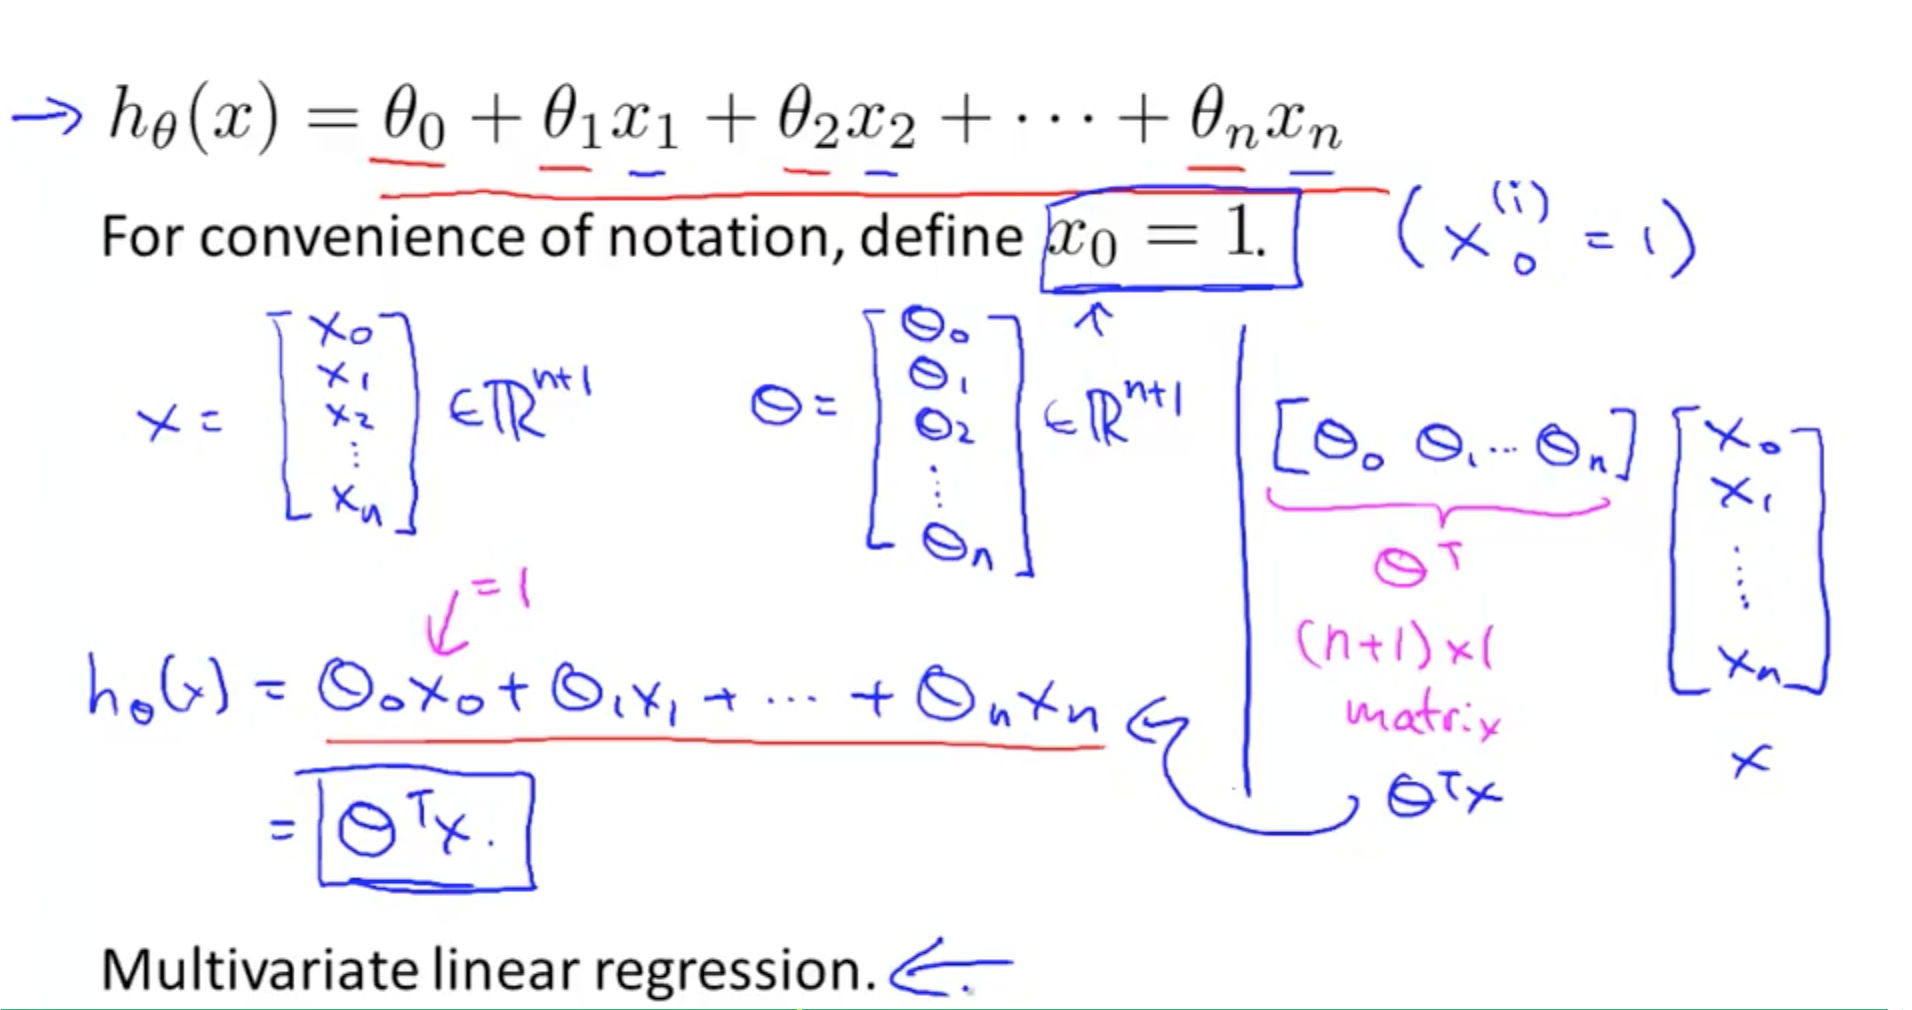 → h_θ(x) = θ₀ + θ₁x₁ + θ₂x₂ + ··· + θₙxₙ
For convenience of notation, define x₀ = 1. (x₀⁽ⁱ⁾ = 1)
x = [x₀ x₁ x₂ ⋮ xₙ] ∈ ℝⁿ⁺¹
θ = [θ₀ θ₁ θ₂ ⋮ θₙ] ∈ ℝⁿ⁺¹
↑
[θ₀ θ₁ ... θₙ] [x₀ x₁ ⋮ xₙ]
θᵀ
(n+1) x 1
matrix
x
θᵀx
= 1
h_θ(x) = θ₀x₀ + θ₁x₁ + ... + θₙxₙ
= θᵀx.
Multivariate linear regression. ←